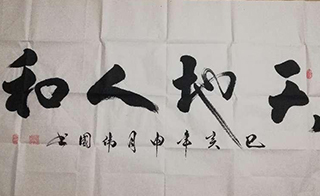 天地人和
己亥年申月韩国书